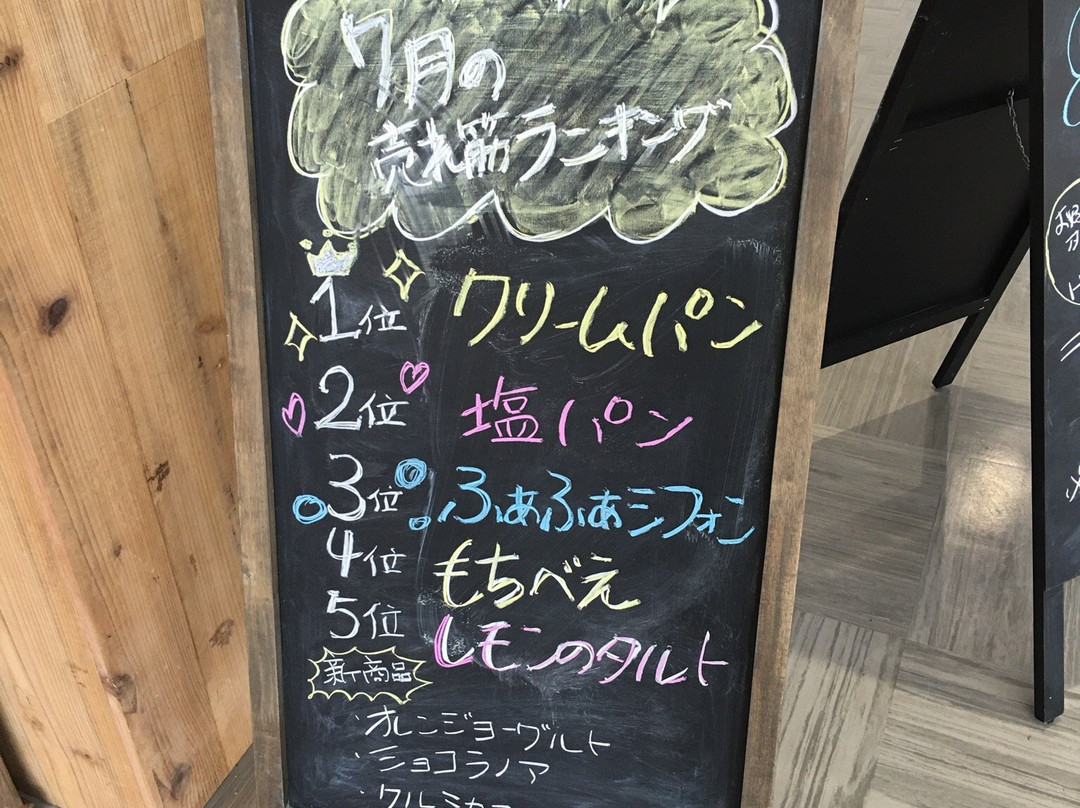 7月の
売れ筋ランキング
1位 クリームパン
2位 塩パン
3位 ふぁふぁシフォン
4位 もちべえ
5位 レモンのタルト
新商品
・オレンジヨーグルト
・ショコラノア